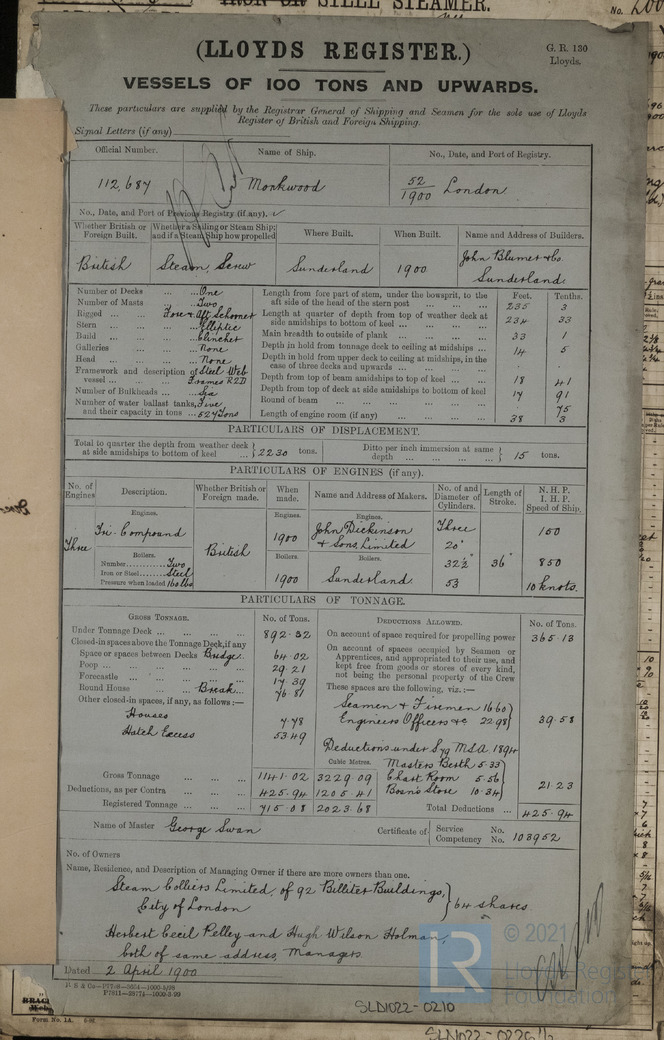 STEEL STEAMER.
No.
(LLOYDS REGISTER.)
G. R. 130
Lloyds.
VESSELS OF 100 TONS AND UPWARDS.
These particulars are supplied by the Registrar General of Shipping and Seamen for the sole use of Lloyds
Register of British and Foreign Shipping.
Signal Letters (if any)
Official Number. Name of Ship. No., Date, and Port of Registry.
112,687 Monkwood 52/1900 London
No., Date, and Port of Previous Registry (if any).
Whether British or Foreign Built. Whether a Sailing or Steam Ship; and if a Steam Ship how propelled Where Built. When Built. Name and Address of Builders.
British Steam, Screw Sunderland 1900 John Blumer & Co. Sunderland.
Feet. Tenths.
Number of Decks ... One
Number of Masts ... Two
Rigged ... Fore & Aft Schooner
Stern ... Elliptic
Build ... Clincher
Galleries ... None
Head ... None
Framework and description of vessel ... Steel Web Frames R2D
Number of Bulkheads ... Six
Number of water ballast tanks, and their capacity in tons ... Five 527 Tons
Length from fore part of stem, under the bowsprit, to the aft side of the head of the stern post 235 3
Length at quarter of depth from top of weather deck at side amidships to bottom of keel 234 33
Main breadth to outside of plank 33 1
Depth in hold from tonnage deck to ceiling at midships 14 5
Depth in hold from upper deck to ceiling at midships, in the case of three decks and upwards . .
Depth from top of beam amidships to top of keel 18 41
Depth from top of deck at side amidships to bottom of keel 17 91
Round of beam 75
Length of engine room (if any) 38 3
PARTICULARS OF DISPLACEMENT.
Total to quarter the depth from weather deck at side amidships to bottom of keel } 2230 tons. Ditto per inch immersion at same depth } 15 tons.
PARTICULARS OF ENGINES (if any).
No. of Engines Description. Whether British or Foreign made. When made. Name and Address of Makers. No. of and Diameter of Cylinders. Length of Stroke. N. H. P. I. H. P. Speed of Ship.
Engines. Engines. Engines.
Three Tri-Compound British 1900 John Dickinson & Sons, Limited Three 20" 150
Boilers. Boilers. Boilers.
Number Two 32½" 36" 850
Iron or Steel Steel
Pressure when loaded 160 lbs 1900 Sunderland 53 10 knots.
PARTICULARS OF TONNAGE.
GROSS TONNAGE. No. of Tons. DEDUCTIONS ALLOWED. No. of Tons.
Under Tonnage Deck 892.32
Closed-in spaces above the Tonnage Deck, if any
Space or spaces between Decks Bridge. 64.02
Poop 29.21
Forecastle 17.39
Round House Break 76.81
Other closed-in spaces, if any, as follows:—
Houses 7.78
Hatch Excess 53.49
On account of space required for propelling power 365.13
On account of spaces occupied by Seamen or Apprentices, and appropriated to their use, and kept free from goods or stores of every kind, not being the personal property of the Crew
These spaces are the following, viz.:—
Seamen & Firemen 16.60
Engineers Officers &c 22.98 } 39.58
Deductions under S79 MSA 1894
Masters Berth 5.33
Chart Room 5.56
Bosn's Store 10.34 } 21.23
Cubic Metres.
Gross Tonnage 1141.02 3229.09
Deductions, as per Contra 425.94 1205.41
Registered Tonnage 715.08 2023.68
Total Deductions 425.94
Name of Master George Swan Certificate of { Service No. Competency No. 103952
No. of Owners
Name, Residence, and Description of Managing Owner if there are more owners than one.
Steam Colliers Limited, of 92 Billiter Buildings,
City of London } 64 shares
Herbert Cecil Pelley and Hugh Wilson Holman,
both of same address, Managers.
Dated 2 April 1900
Form No. 1A.
LR
© 2021
Lloyd's Regist
Foundation
SLD1022-0210